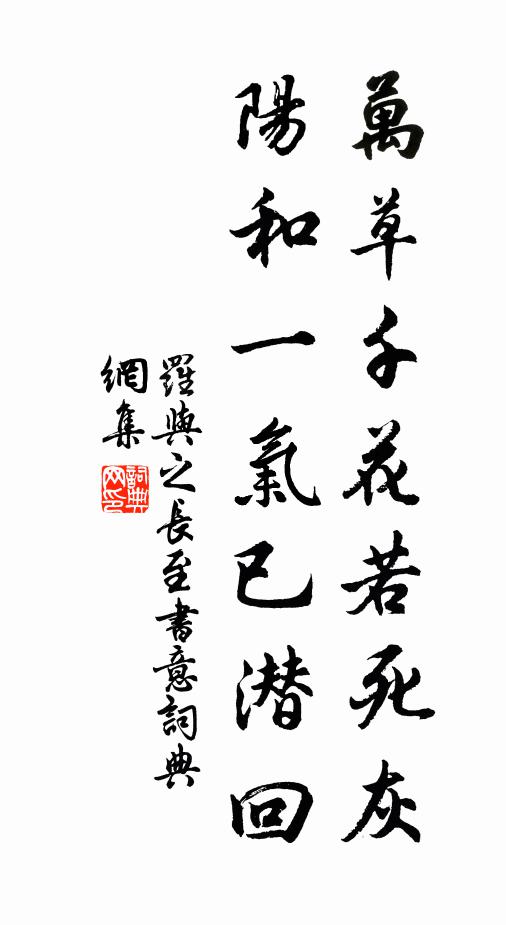 萬草千花若死灰
陽和一氣已潛回
羅與之長至書意詞典
網集
詞典網印